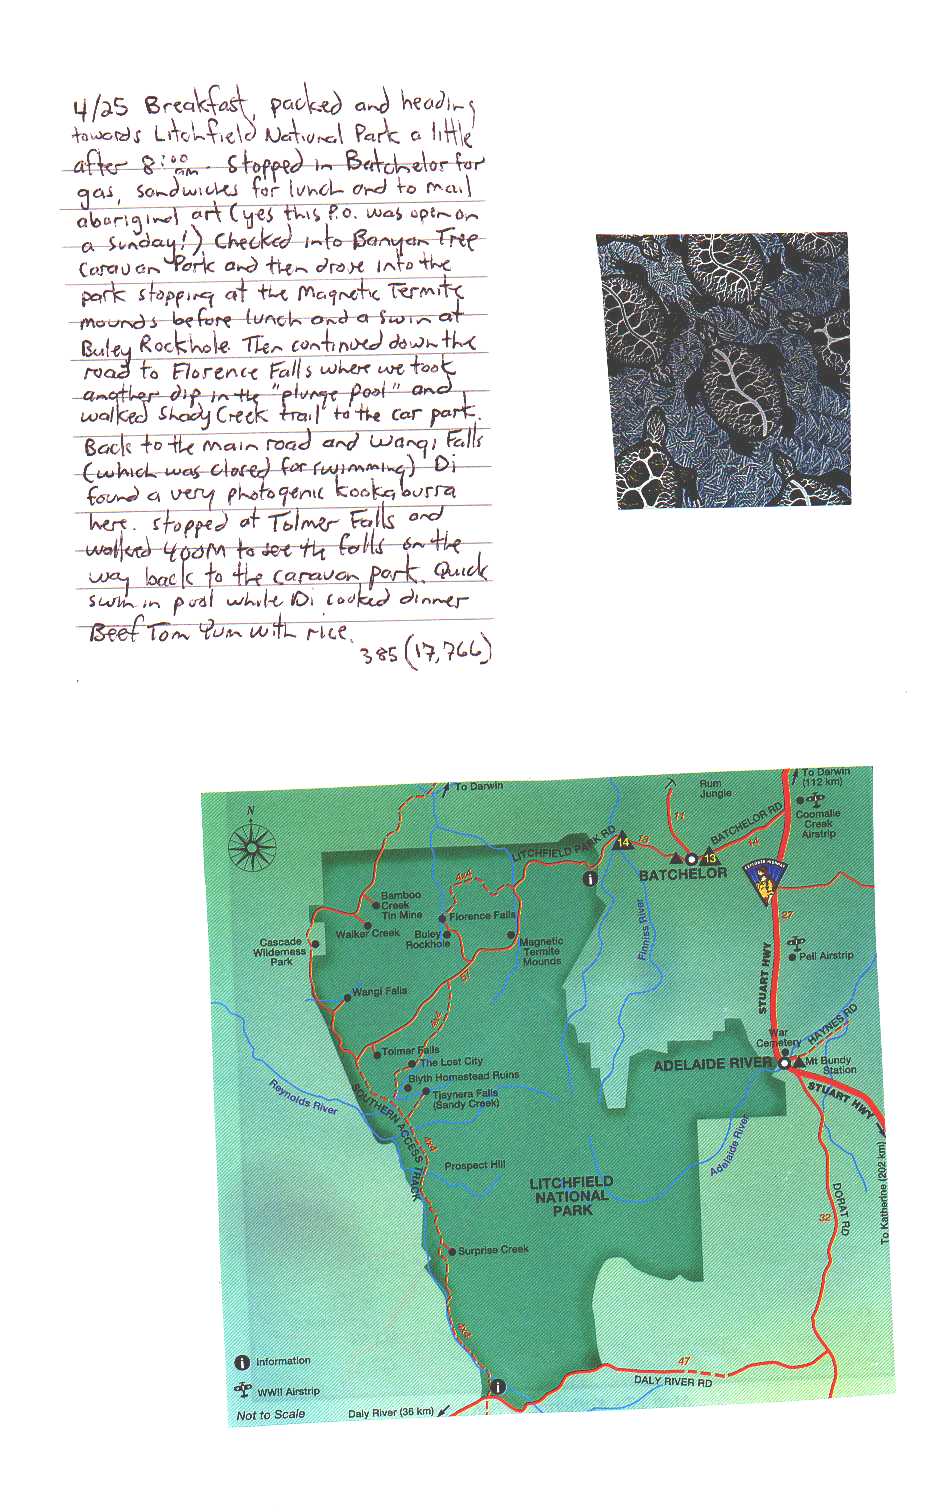 4/25 Breakfast, packed and heading
towards Litchfield National Park a little
after 8:00 am. Stopped in Batchelor for
gas, sandwiches for lunch and to mail
aboriginal art (yes this P.O. was open on
a Sunday!) Checked into Banyan Tree
Caravan Park and then drove into the
park stopping at the Magnetic Termite
mounds before lunch and a swim at
Buley Rockhole. Then continued down the
road to Florence Falls where we took
another dip in the "plunge pool" and
walked Shady Creek trail to the car park.
Back to the main road and Wangi Falls
(which was closed for swimming) Di
found a very photogenic kookaburra
here. Stopped at Tolmer Falls and
walked 400M to see the falls on the
way back to the caravan park. Quick
swim in pool while Di cooked dinner
Beef Tom Yum with rice.
385 (17,766)
N
To Darwin
Rum
Jungle
To Darwin
(112 km)
Coomalie
Creek
Airstrip
11
BATCHELOR RD
14
LITCHFIELD PARK RD
14
19
13
BATCHELOR
EXPLORER HIGHWAY
27
i
4x4
Bamboo
Creek
Tin Mine
Walker Creek
Florence Falls
Buley
Rockhole
Magnetic
Termite
Mounds
Finniss River
Cascade
Wilderness
Park
Pell Airstrip
STUART HWY
Wangi Falls
4x4
War
Cemetery
HAYNES RD
Tolmar Falls
The Lost City
ADELAIDE RIVER
Mt Bundy
Station
Blyth Homestead Ruins
Tjaynera Falls
(Sandy Creek)
STUART HWY
Reynolds River
SOUTHERN ACCESS TRACK
4x4
Adelaide River
To Katherine (202 km)
Prospect Hill
LITCHFIELD
NATIONAL
PARK
DORAT RD
32
Surprise Creek
4x4
i Information
WWII Airstrip
Not to Scale
47
DALY RIVER RD
i
Daly River (36 km)